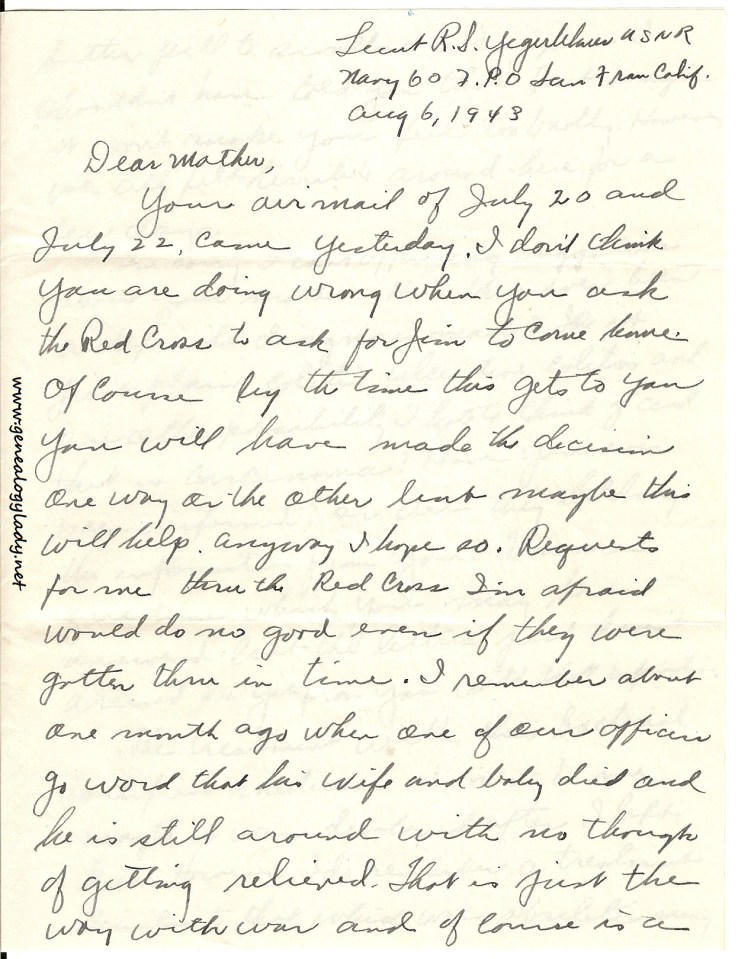 Lieut R.S. Yegerlehner USNR
Navy 60 F.P.O San Fran Calif.
Aug 6, 1943
Dear Mother,
Your air mail of July 20 and
July 22, came yesterday. I don't think
you are doing wrong when you ask
the Red Cross to ask for Jim to come home.
Of course by the time this gets to you
you will have made the decision
one way or the other but maybe this
will help. Anyway I hope so. Requests
for me thru the Red Cross I'm afraid
would do no good even if they were
gotten thru in time. I remember about
one month ago when one of our officers
go word that his wife and baby died and
he is still around with no thought
of getting relieved. That is just the
way with war and of course is a
www.genealogylady.net